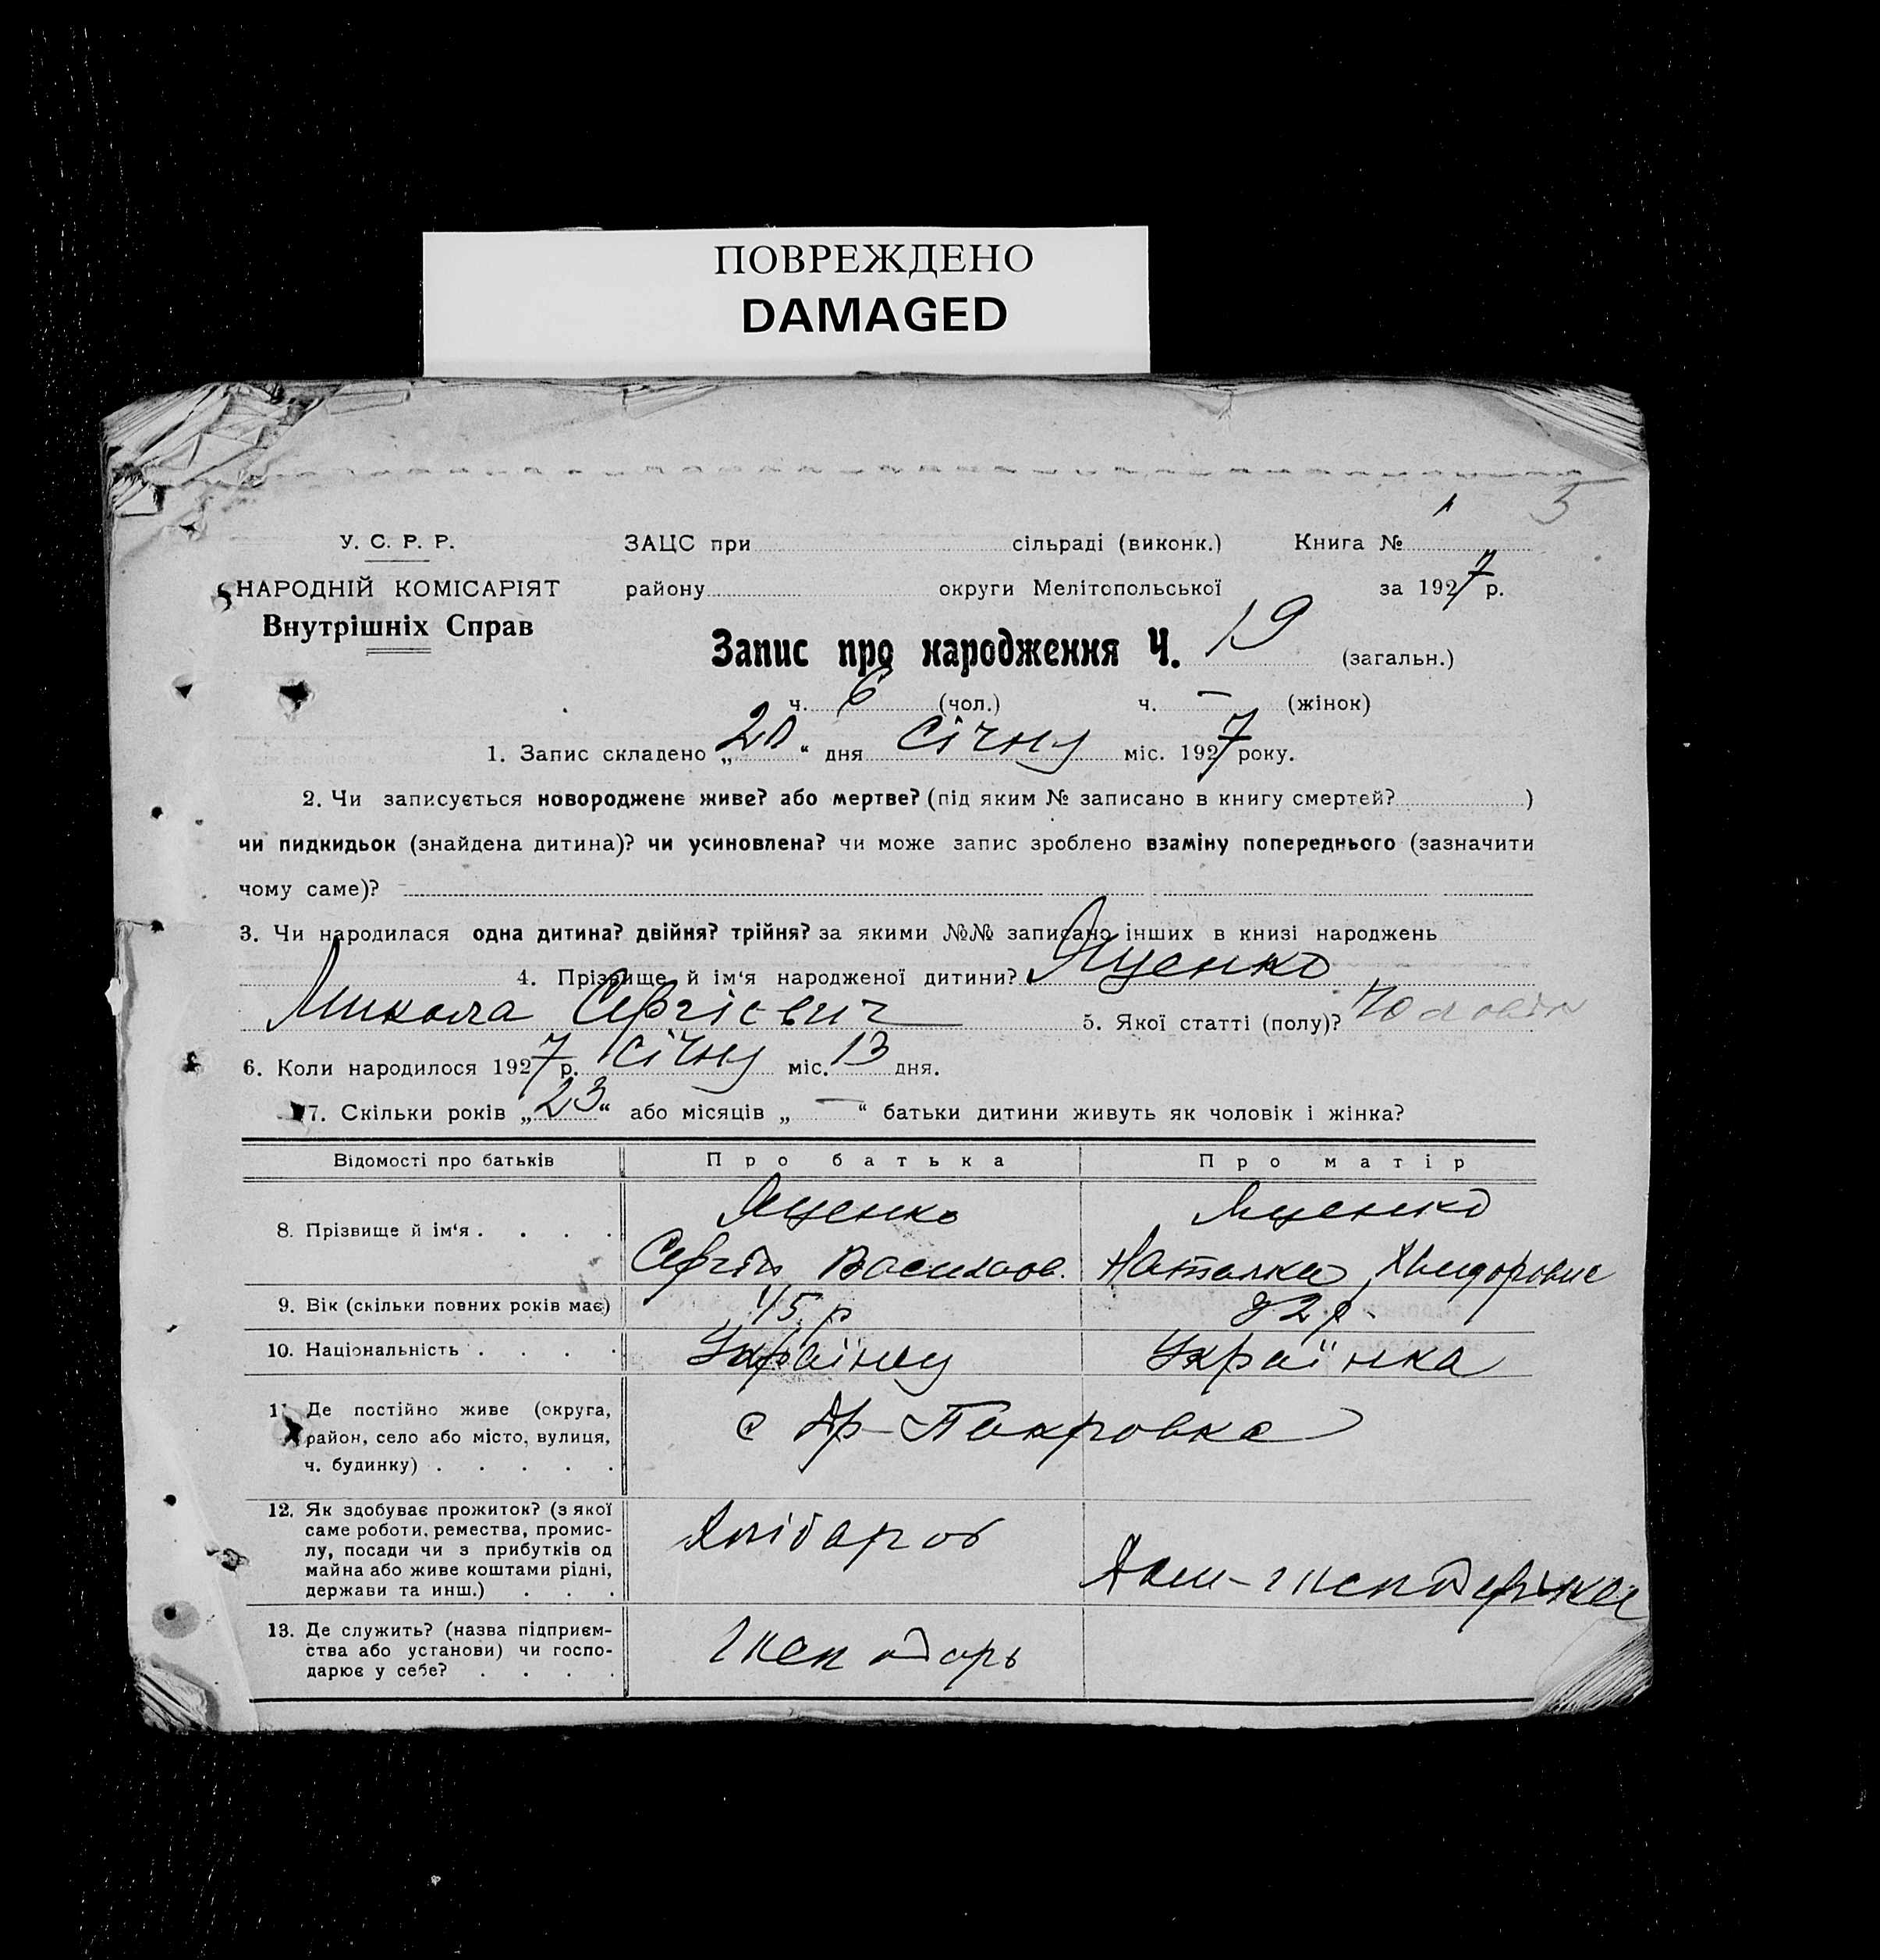 ПОВРЕЖДЕНО
DAMAGED
5
У. С. Р. Р. ЗАЦС при сільраді (виконк.) Книга №
НАРОДНІЙ КОМІСАРІЯТ району округи Мелітопольської за 1927 р.
Внутрішніх Справ
Запис про народження Ч. 19 (загальн.)
ч. 6 (чол.) ч. — (жінок)
1. Запис складено „20“ дня січну міс. 1927 року.
2. Чи записується новороджене живе? або мертве? (під яким № записано в книгу смертей? )
чи пидкидьок (знайдена дитина)? чи усиновлена? чи може запис зроблено взаміну попереднього (зазначити
чому саме)?
3. Чи народилася одна дитина? двійня? трійня? за якими №№ записано інших в книзі народжень
4. Прізвище й ім‘я народженої дитини? Яценко
Микола Сергієвич 5. Якої статті (полу)?
6. Коли народилося 1927 р. січну міс. 13 дня.
7. Скільки років „23“ або місяців „—“ батьки дитини живуть як чоловік і жінка?
Відомості про батьків Про батька Про матір
8. Прізвище й ім‘я . . . . Яценко Яценко
Сергій Васильов. Наталка
9. Вік (скільки повних років має) 45 р 42 р.
10. Національність . . . . Українец Українка
11. Де постійно живе (округа,
район, село або місто, вулиця,
ч. будинку) . . . . . с Покровка
12. Як здобуває прожиток? (з якої
саме роботи, ремества, промис-
лу, посади чи з прибутків од
майна або живе коштами рідні,
держави та инш.) . . . Хлібороб
13. Де служить? (назва підприєм-
ства або установи) чи госпо-
дарює у себе? . . . .